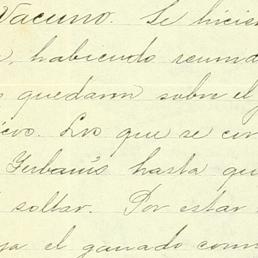 Vacuno. Se hicie
, habiendo reuni
quedaron sobre el
Los que se
hasta qu
soltar. Por estar
ya el ganado com